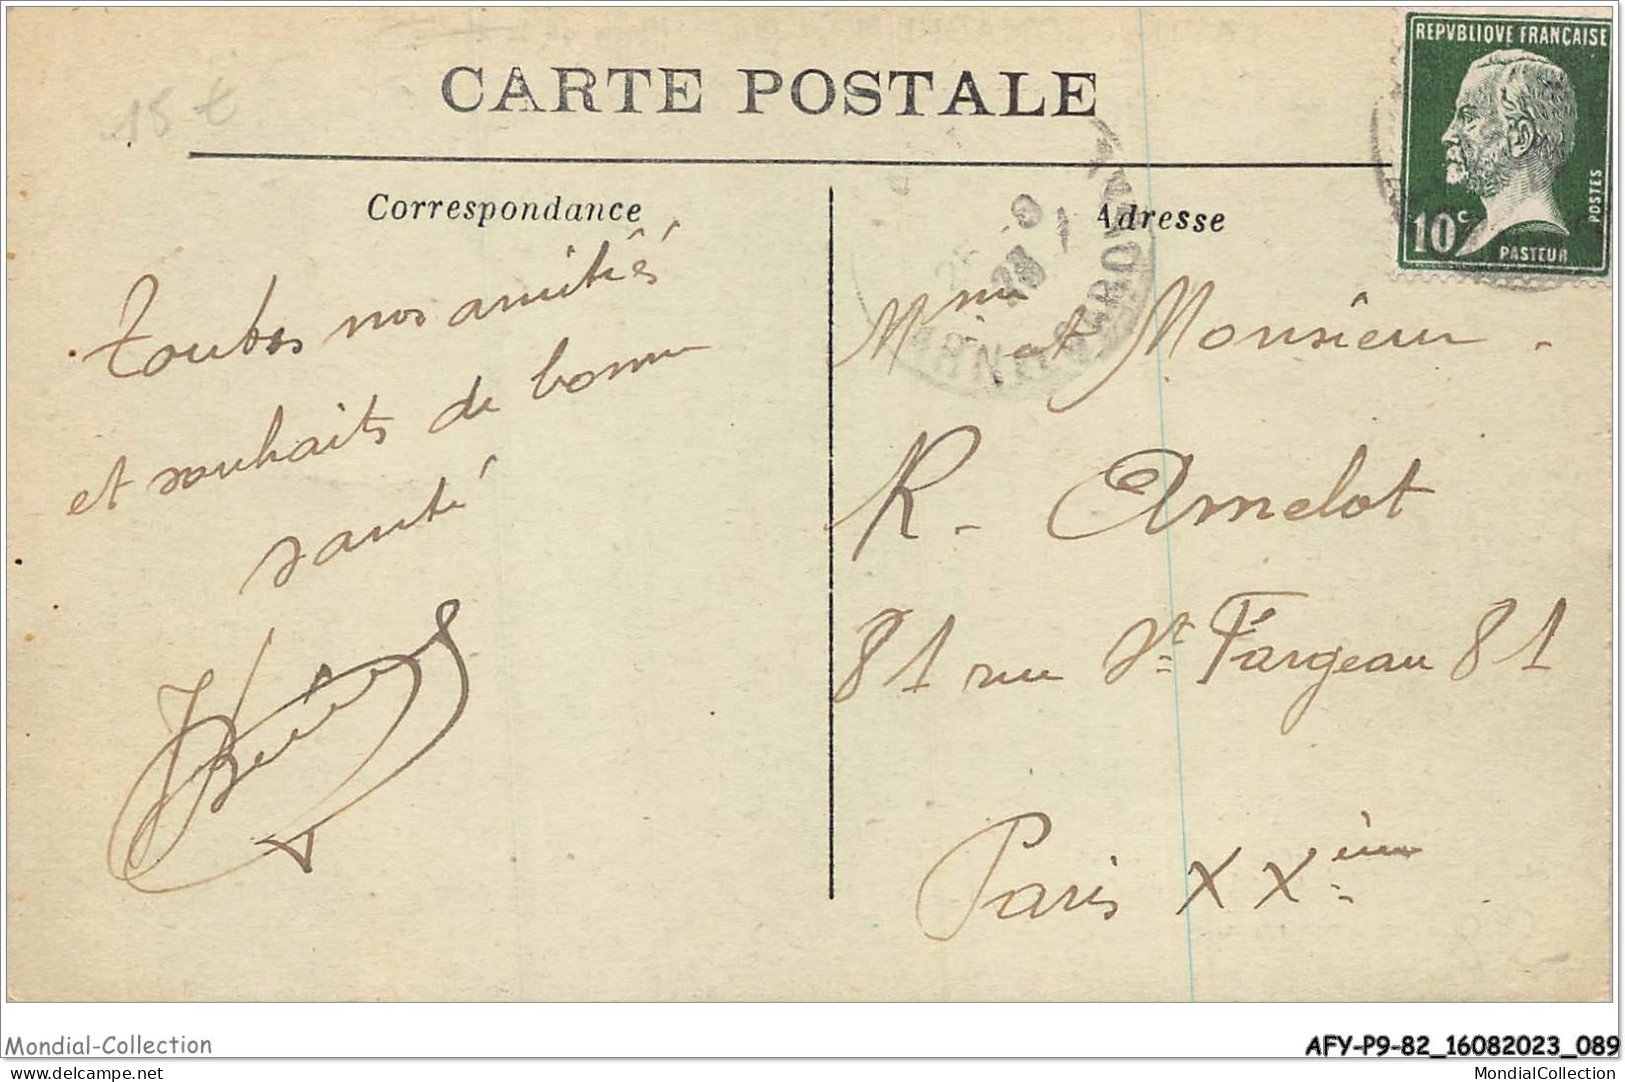 REPVBLIQVE FRANÇAISE
CARTE POSTALE
15 €
POSTES
10c
PASTEUR
Correspondance
Adresse
Toutes nos amitiés
et souhaits de bonne
santé
Mme et Monsieur
R. Amelot
81 rue St Fargeau 81
Paris XXème
Mondial-Collection
AFY-P9-82_16082023_089
MondialCollection.com
MondialCollection